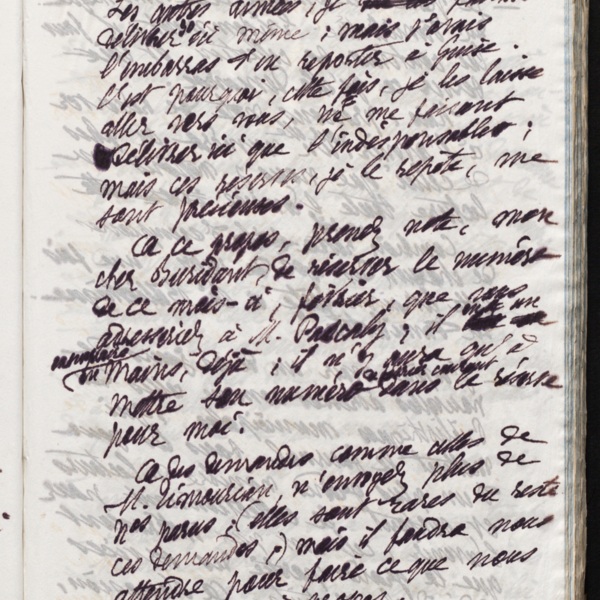 Les autres années, je
délivrer ici même ; mais j'avais
l'embarras d'en reporter à Guise.
C'est pourquoi, cette fois, je les laisse
aller vers vous, ne me faisant
délivrer ici que l'indispensable ;
mais ces réserves, je le répète, me
sont précieuses.
À ce propos, prenez note, mon
cher Buridant, de réserver le numéro
de ce mois-ci, février, que vous
adresseriez à M. Pascaly ; il
mains, déjà ; il n'y aura qu'à
mettre son numéro dans la réserve
pour moi.
À des demandes comme celles de
M. n'envoyez plus de
nos parus, (elles sont rares du reste
ces demandes,) mais il faudra nous
attendre pour faire ce que nous